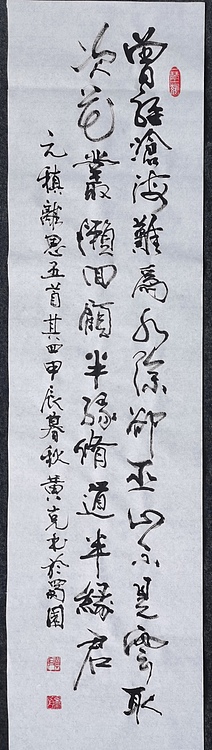 曾經滄海難爲水除卻巫山不是雲取
次花叢懶回顧半緣脩道半緣君
元稹離思五首其四甲辰暮秋黃克书於蜀園